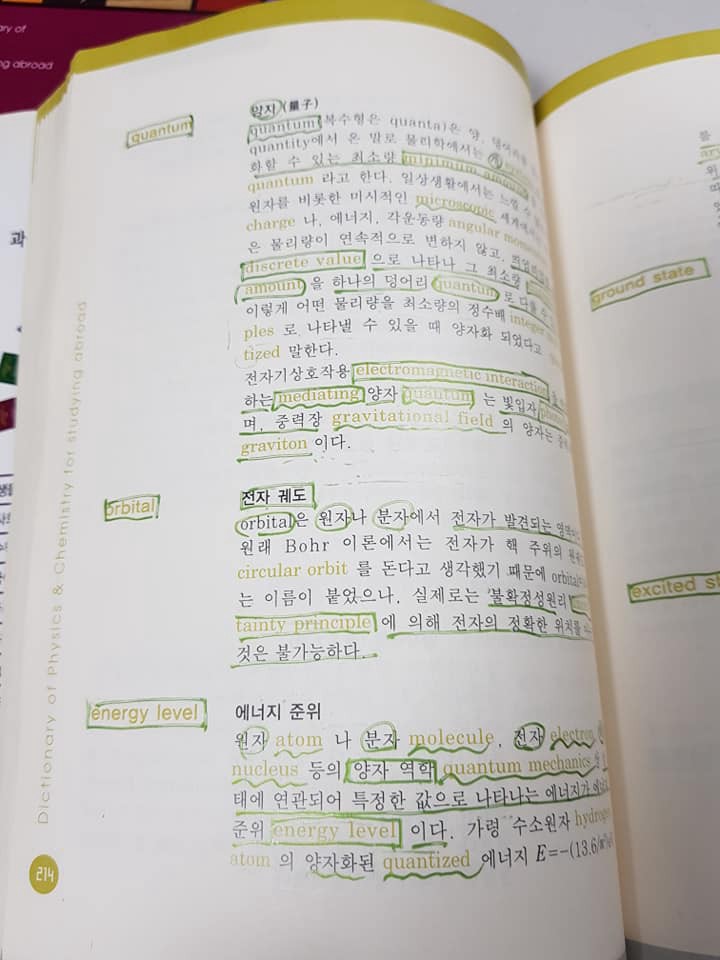 ary of
ng abroad
quantum
양자(量子)
quantum(복수형은 quanta)은 양, 덩어리를
quantity에서 온 말로 물리학에서는
화할 수 있는 최소량 minimum amount
quantum 라고 한다. 일상생활에서는 느낄 수
원자를 비롯한 미시적인 microscopic 세계에서는
charge 나, 에너지, 각운동량 angular
은 물리량이 연속적으로 변하지 않고,
discrete value 으로 나타나 그 최소량
amount 을 하나의 덩어리 quantum 로 다룰 수
이렇게 어떤 물리량을 최소량의 정수배 integer
ples 로 나타낼 수 있을 때 양자화 되었다고
tized 말한다.
전자기상호작용 electromagnetic interaction
하는 mediating 양자 quantum 는 빛입자
며, 중력장 gravitational field 의 양자는
graviton 이다.
orbital
전자 궤도
orbital은 원자나 분자에서 전자가 발견되는
원래 Bohr 이론에서는 전자가 핵 주위의
circular orbit 를 돈다고 생각했기 때문에 orbital
는 이름이 붙었으나, 실제로는 불확정성원리
tainty principle 에 의해 전자의 정확한 위치를
것은 불가능하다.
energy level
에너지 준위
원자 atom 나 분자 molecule, 전자 electron,
nucleus 등의 양자 역학 quantum mechanics
태에 연관되어 특정한 값으로 나타나는 에너지가
준위 energy level 이다. 가령 수소원자 hydrogen
atom 의 양자화된 quantized 에너지 E=-(13.6/
Dictionary of Physics & Chemistry for studying abroad
214
ground state
excited st